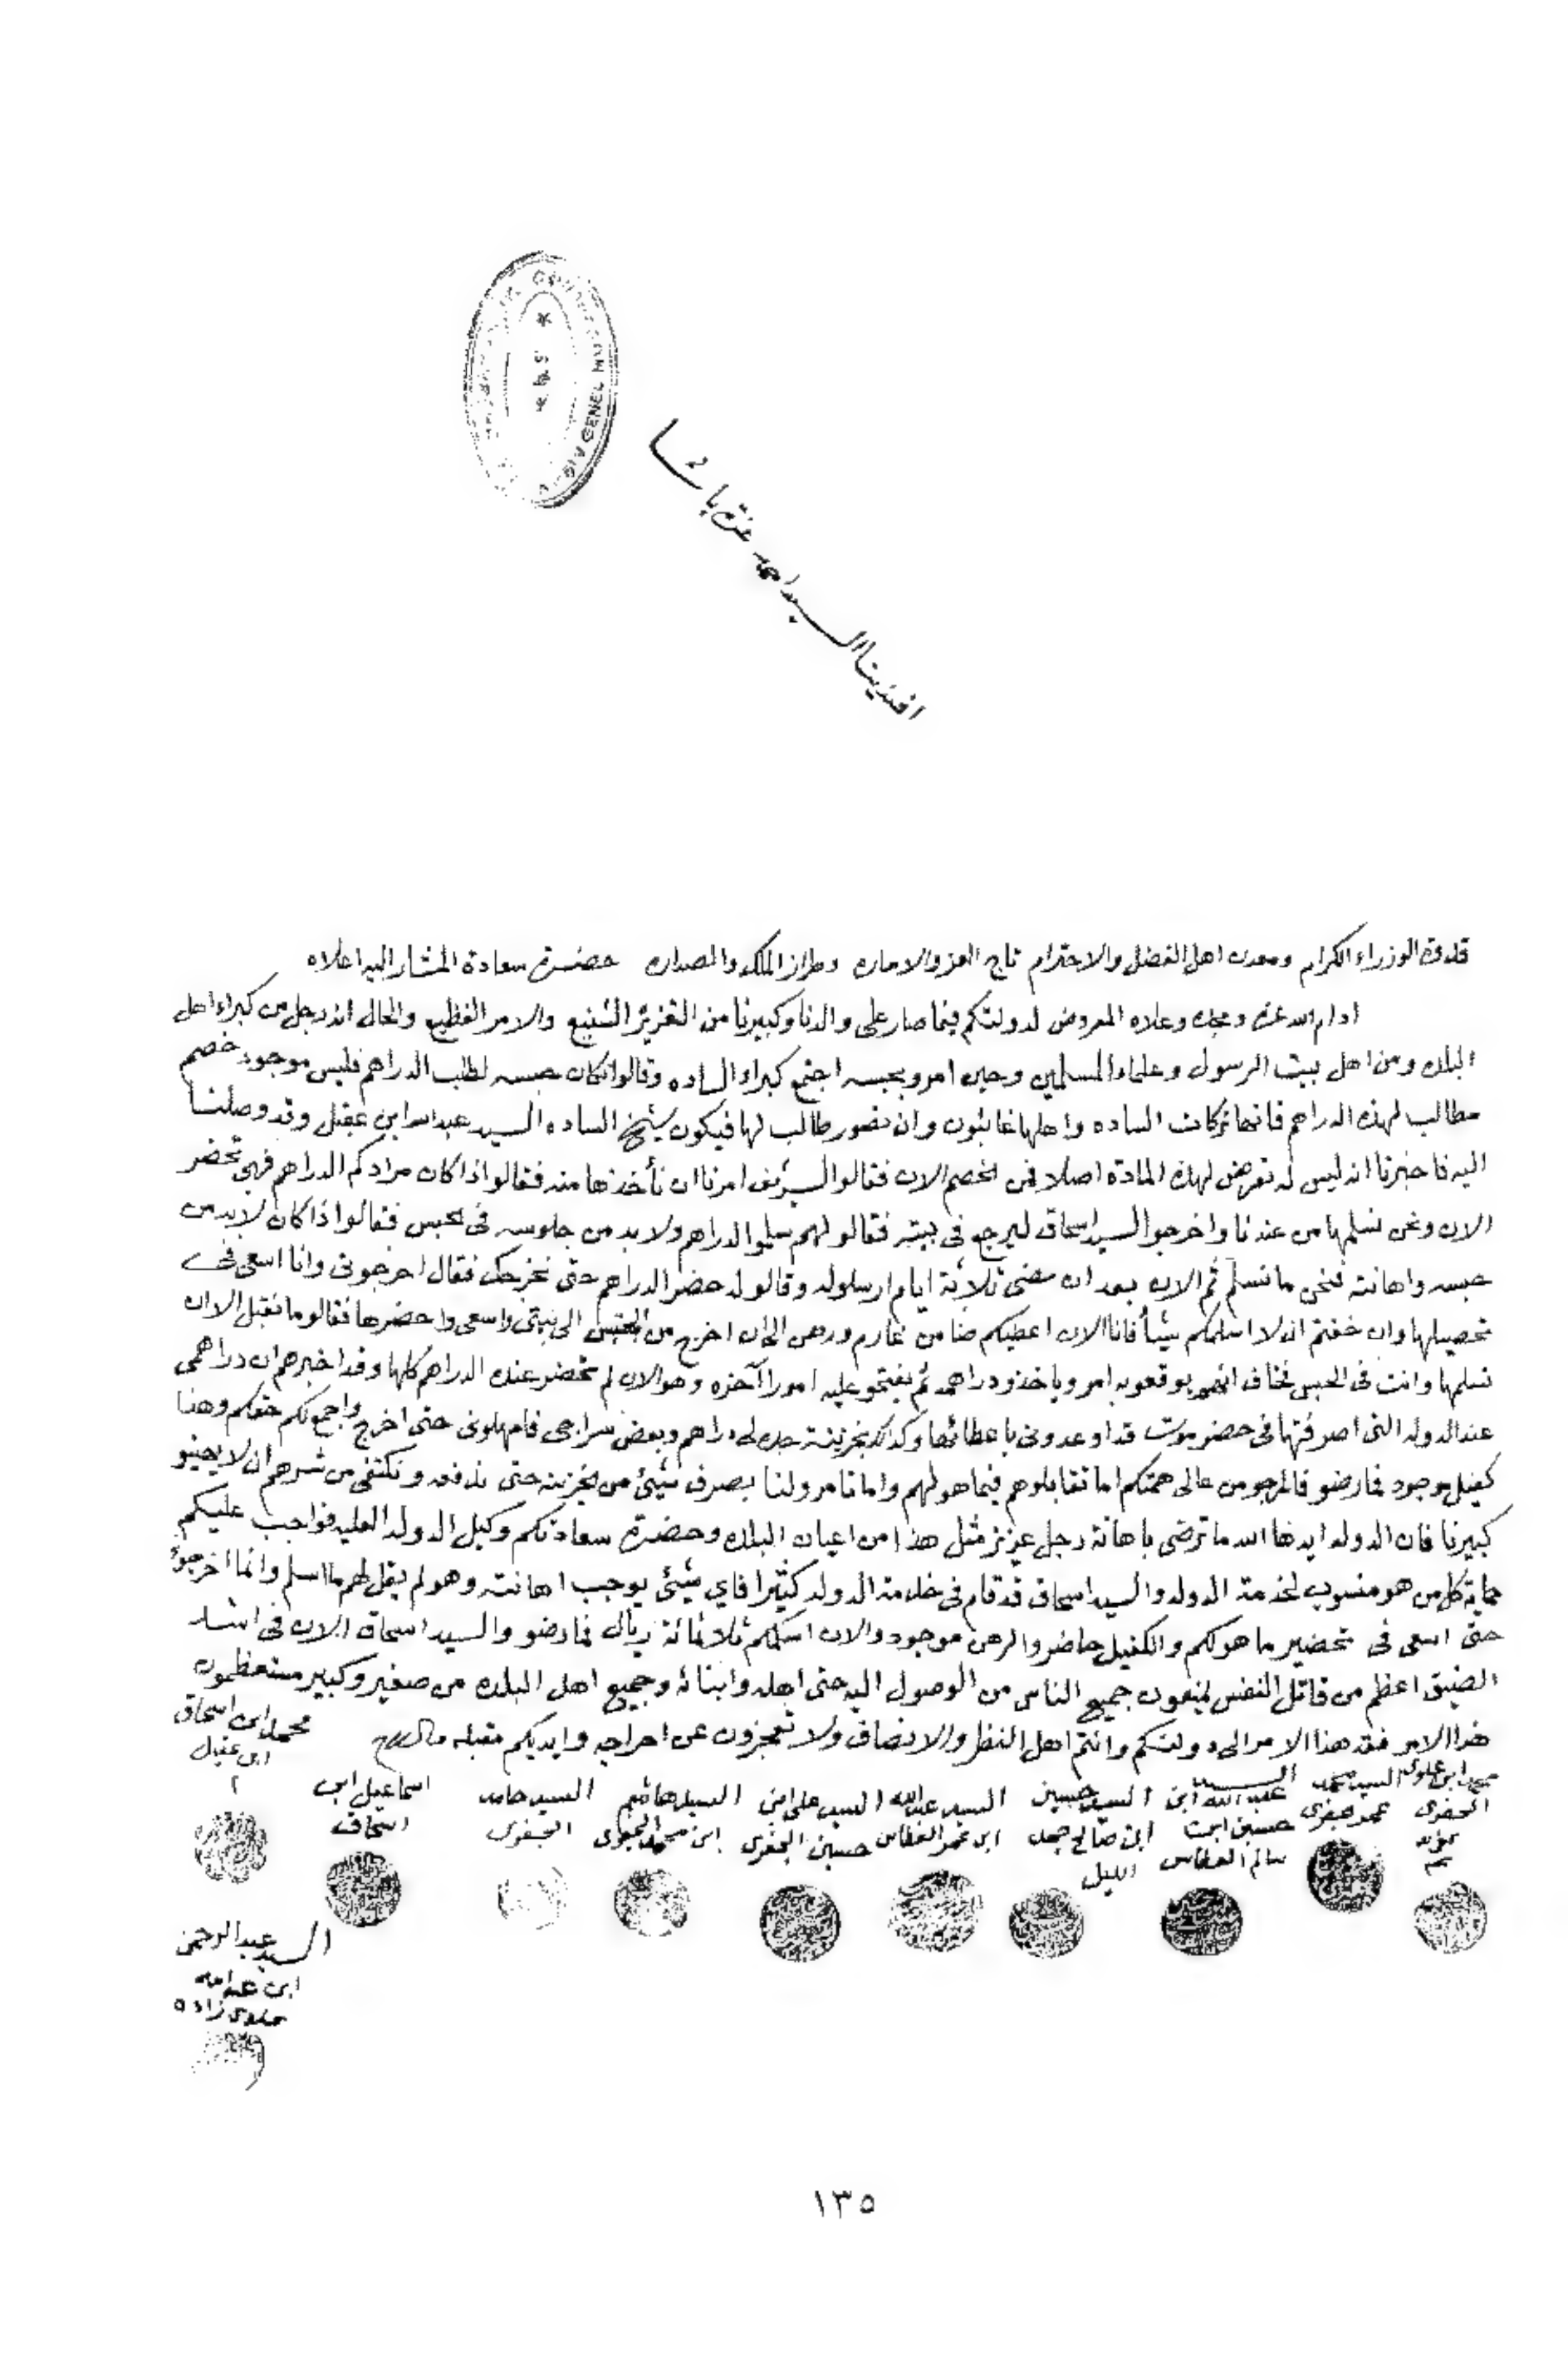 افندينا السيد احمد عزت باشا
قدوة الوزراء الكرام ومعدن اهل الفضل والاحترام تاج العز والاماره وطراز الملك والصداره حضرة سعادة المشار اليه اعلاه
ادام الله عزه ومجده وعلاه المعروض لدولتكم فيما صار على والدنا وكبيرنا من التعزير الشنيع والامر الفظيع والحال انه رجل من كبراء اهل
البلده ومن اهل بيت الرسول وعلماء المسلمين وحين امرو بحبسه اجتمع كبراء الساده وقالوا انكان حبسه لطلب الدراهم فليس موجود خصم
مطالب لهذه الدراهم فانها تركات الساده واهلها غائبون وان تصور طالب لها فيكون شيخ الساده السيد عبد الله ابن عقيل وقد وصلنا
اليه فاخبرنا انه ليس له تعرض لهذه المادة اصلا فمن الخصم الان فقالو الشريف امرنا ان نأخذها منه فقالو اذا كان مرادكم الدراهم فهي تحضر
الان ونحن نسلمها من عندنا واخرجو السيد اسحاق ليرجع في بيته فقالو لهم سلموا الدراهم ولا بد من جلوسه في الحبس فقالو اذا كان لابد من
حبسه واهانته فنحن ما نسلم ثم الان بعد ان مضى ثلاثة ايام ارسلو له وقالو له حضر الدراهم حتى نخرجك فقال اخرجوني وانا اسعى في
تحصيلها وان خفتم ان لا اسلمكم شيأ فانا الان اعطيكم ضامن غارم ورهن الى ان اخرج من الحبس الى بيتي واسعى واحضرها فقالو ما نقبل الا ان
تسلمها وانت في الحبس فخاف انهم يوقعو به امر وياخذو دراهمه ثم يفتحو عليه امورا آخره وهو الان لم تحضر عنده الدراهم كلها وقد اخبرهم ان دراهمي
عند الدوله التي اصرفتها في حضرموت قد اوعدوني باعطائها وكذلك بخزينة جده لي دراهم وبعض سراجى فامهلوني حتى اخرج واجمع لكم حقكم وهنا
كفيل موجود فما رضو فالمرجو من عالى همتكم اما تقابلوهم فيما هو لهم واما تامرو لنا بصرف شيئ من الخزينه حتى ندفعه ونكتفى من شرهم ان لا يحينو
كبيرنا فان الدوله ايدها الله ما ترضى باهانة رجل عزيز مثل هذا من اعيان البلده وحضرة سعادتكم وكيل الدوله العليه فواجب عليكم
حماية كل من هو منسوب لخدمة الدوله والسيد اسحاق قد قام في خدمة الدوله كثيرا فاي شيئ يوجب اهانته وهو لم يقل لهم ما اسلم وانما اخرجوني
حتى اسعى في تحضير ما هو لكم والكفيل حاضر والرهن موجود والان اسلمكم ثلاثمائة ريال فما رضو والسيد اسحاق الان في اشد
الضيق اعظم من قاتل النفس يمنعون جميع الناس من الوصول اليه حتى اهله وابنائه وجميع اهل البلده من صغير وكبير مستعظمون
هذا الامر فقد هذا الامر الى دولتكم وانتم اهل النظر والانصاف ولا تعجزون عن اخراجه وايديكم مقبله والسلام
محمد ابن علوى الجفرى
السيد محمد محمد جفرى
السيد عبد الله ابن حسين ابن سالم العطاس
السيد حسين ابن صالح جمل الليل
السيد عبد الله ابن عمر العطاس
السيد على ابن حسين الجفرى
السيد هاشم ابن محمد
السيد حامد الجفرى
اسماعيل ابن اسحاق
محمد ابن اسحاق ابن عقيل
السيد عبد الرحمن ابن عبد الله
١٣٥